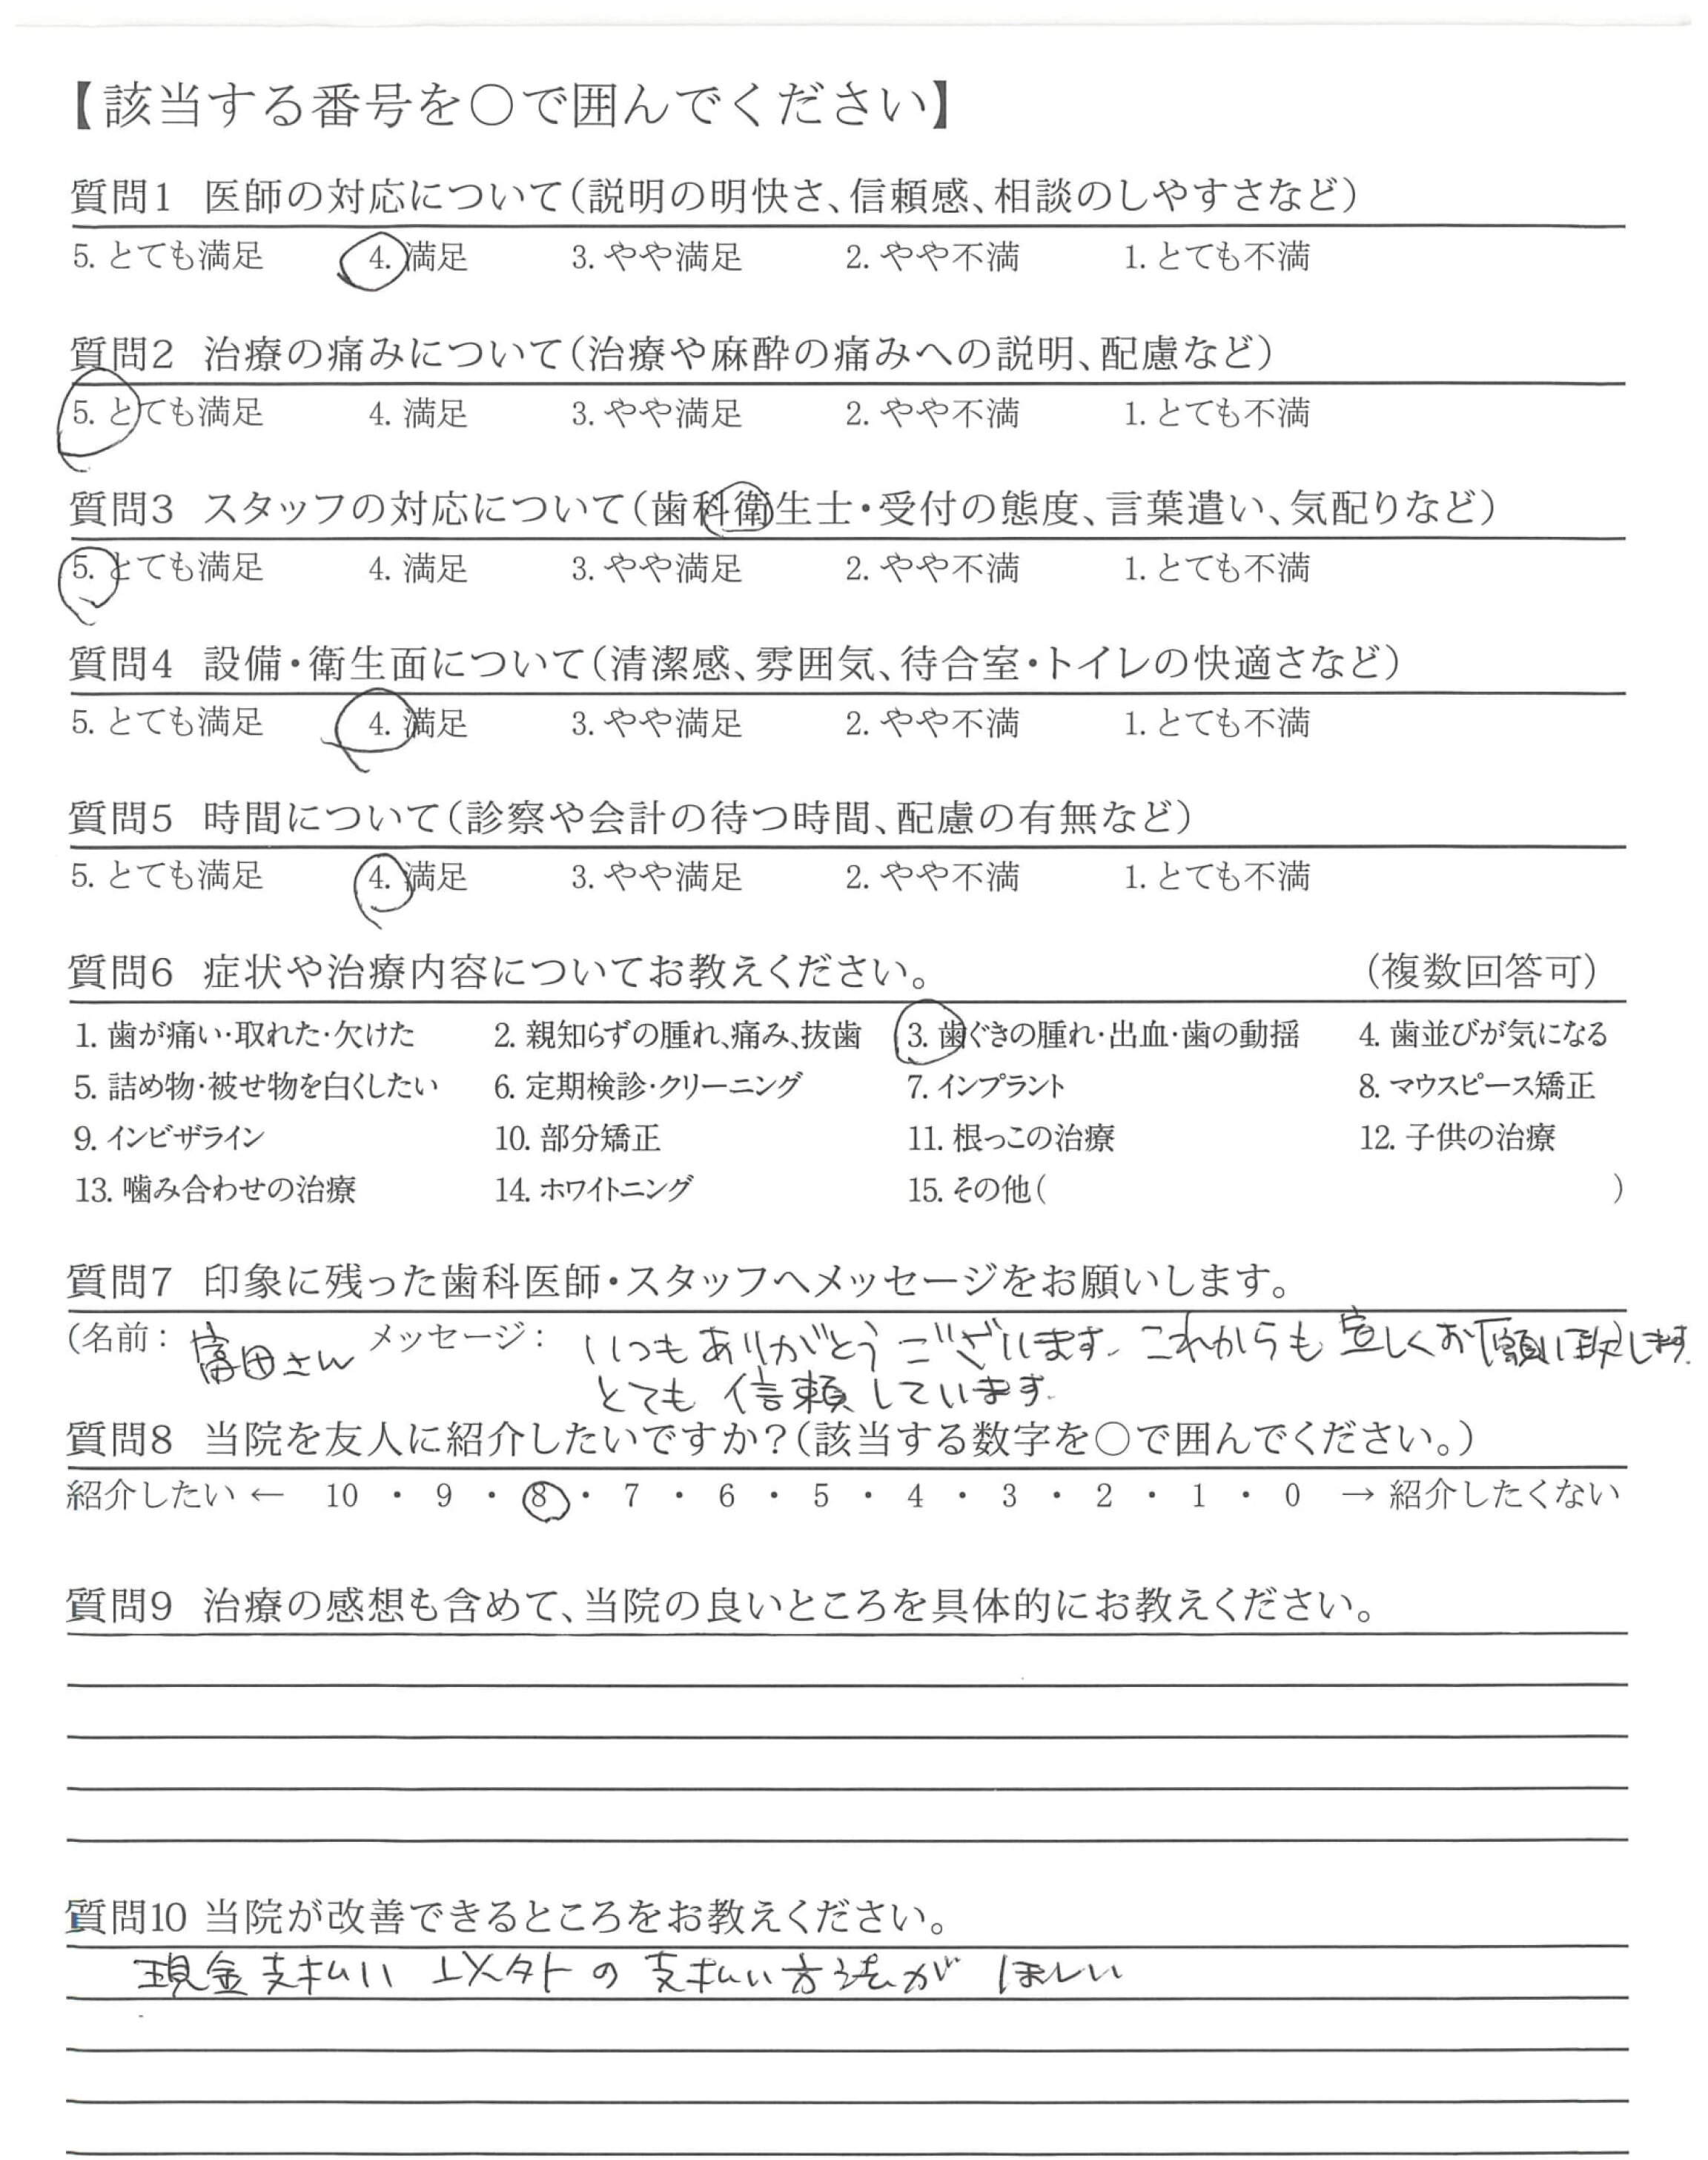 【該当する番号を○で囲んでください】
質問1 医師の対応について(説明の明快さ、信頼感、相談のしやすさなど)
5. とても満足 4. 満足 3. やや満足 2. やや不満 1. とても不満
質問2 治療の痛みについて(治療や麻酔の痛みへの説明、配慮など)
5. とても満足 4. 満足 3. やや満足 2. やや不満 1. とても不満
質問3 スタッフの対応について(歯科衛生士・受付の態度、言葉遣い、気配りなど)
5. とても満足 4. 満足 3. やや満足 2. やや不満 1. とても不満
質問4 設備・衛生面について(清潔感、雰囲気、待合室・トイレの快適さなど)
5. とても満足 4. 満足 3. やや満足 2. やや不満 1. とても不満
質問5 時間について(診察や会計の待つ時間、配慮の有無など)
5. とても満足 4. 満足 3. やや満足 2. やや不満 1. とても不満
質問6 症状や治療内容についてお教えください。 (複数回答可)
1. 歯が痛い・取れた・欠けた 2. 親知らずの腫れ、痛み、抜歯 3. 歯ぐきの腫れ・出血・歯の動揺 4. 歯並びが気になる
5. 詰め物・被せ物を白くしたい 6. 定期検診・クリーニング 7. インプラント 8. マウスピース矯正
9. インビザライン 10. 部分矯正 11. 根っこの治療 12. 子供の治療
13. 噛み合わせの治療 14. ホワイトニング 15. その他( )
質問7 印象に残った歯科医師・スタッフへメッセージをお願いします。
(名前: 富田さん メッセージ: いつもありがとうございます。これからも宜しくお願い致します。)
とても信頼しています。
質問8 当院を友人に紹介したいですか?(該当する数字を○で囲んでください。)
紹介したい ← 10 ・ 9 ・ 8 ・ 7 ・ 6 ・ 5 ・ 4 ・ 3 ・ 2 ・ 1 ・ 0 → 紹介したくない
質問9 治療の感想も含めて、当院の良いところを具体的にお教えください。
質問10 当院が改善できるところをお教えください。
現金支払い以外の支払い方法がほしい